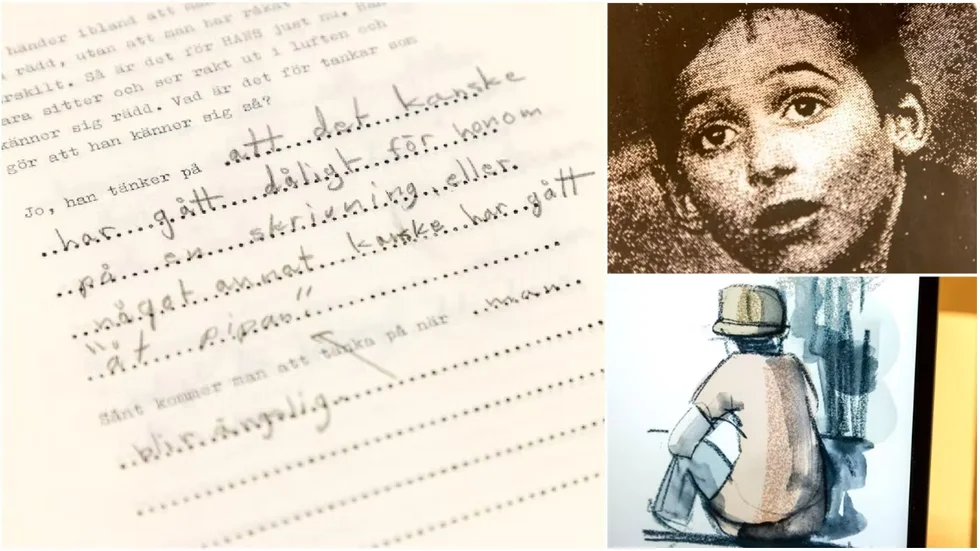 händer ibland att
rädd, utan att man har råkat
rskilt. Så är det för HANS just nu. Han
ara sitter och ser rakt ut i luften och
känner sig rädd. Vad är det för tankar som
gör att han känner sig så?
Jo, han tänker på att det kanske
har gått dåligt för honom
på en skrivning eller
något annat kaske har gått
"åt pipan"
Sånt kommer man att tänka på när man
blir ängslig.